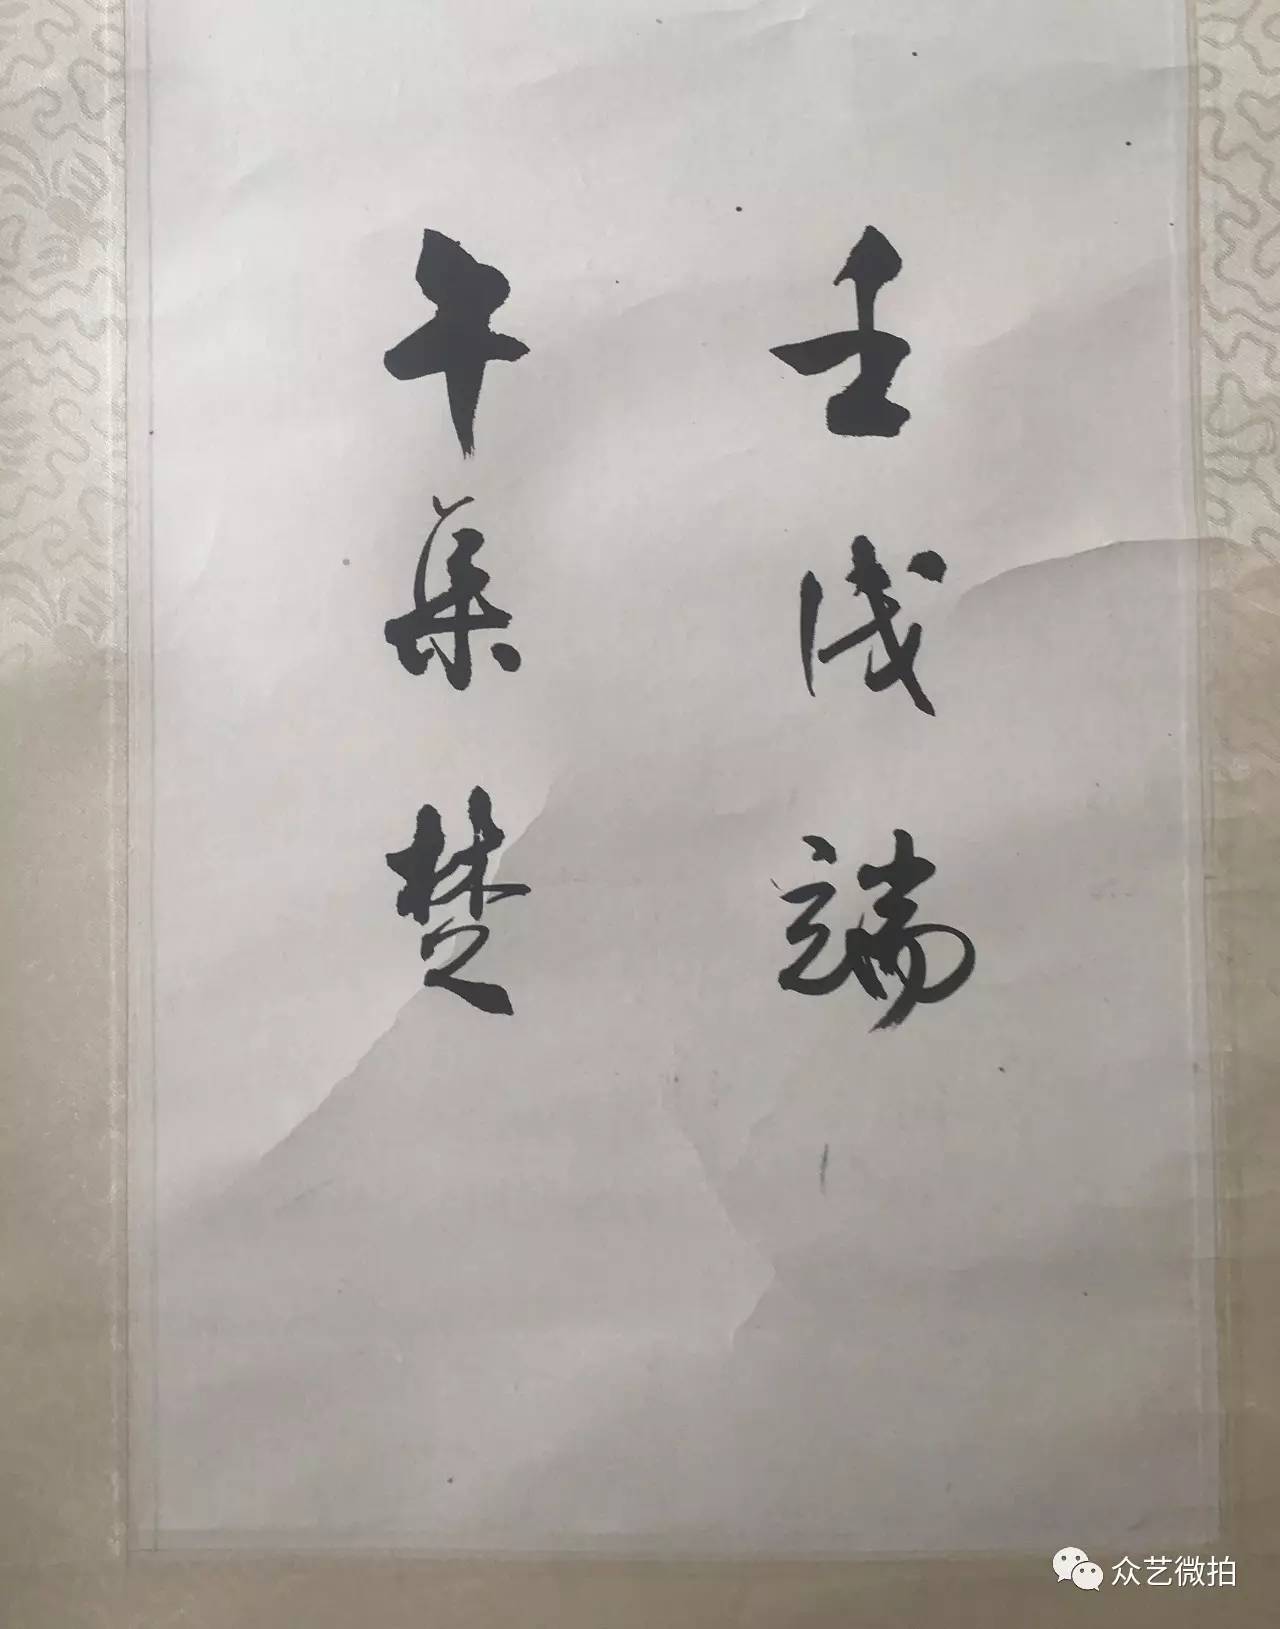 壬戌端
午集楚
众艺微拍